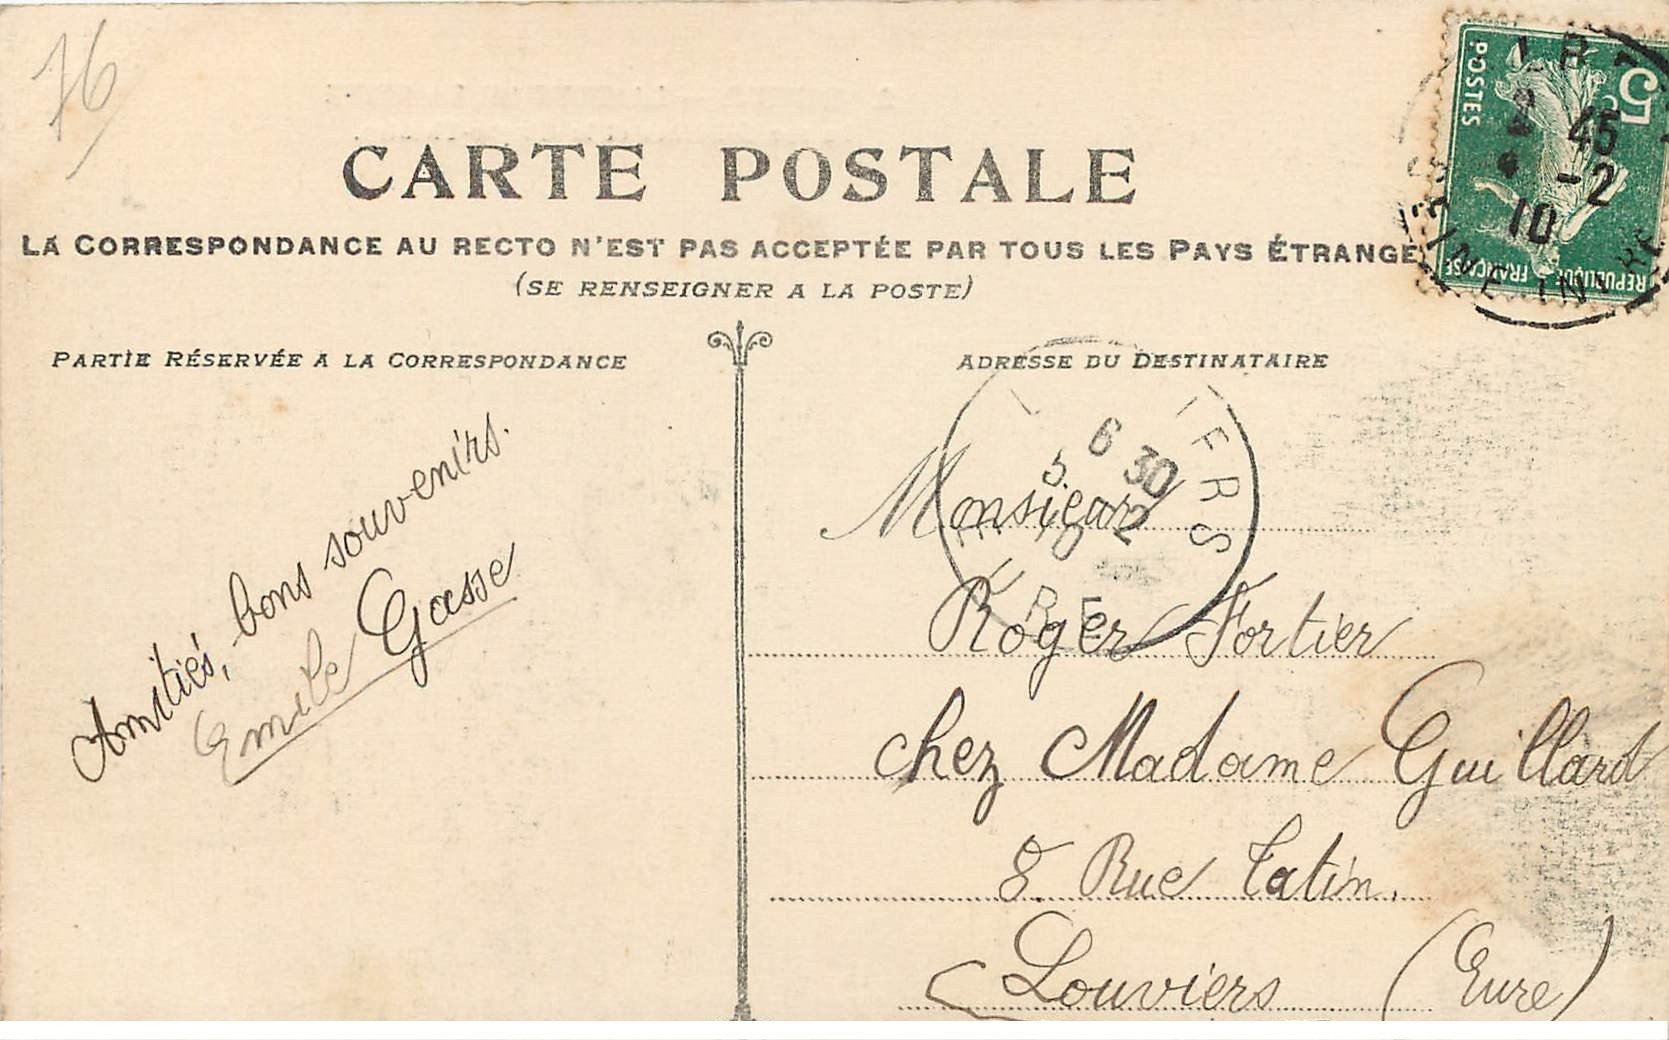 76
CARTE POSTALE
LA CORRESPONDANCE AU RECTO N'EST PAS ACCEPTÉE PAR TOUS LES PAYS ÉTRANGE
(SE RENSEIGNER A LA POSTE)
POSTES
5c
REPUBLIQUE FRANÇAISE
45
4 -2
10
SEINE INFRE
PARTIE RÉSERVÉE A LA CORRESPONDANCE
Amitiés, bons souvenirs.
Emile Gasse
ADRESSE DU DESTINATAIRE
IERS
6 30
5 2
10
EURE
Monsieur
Roger Fortier
chez Madame Guillard
8. Rue Tatin.
Louviers (Eure)